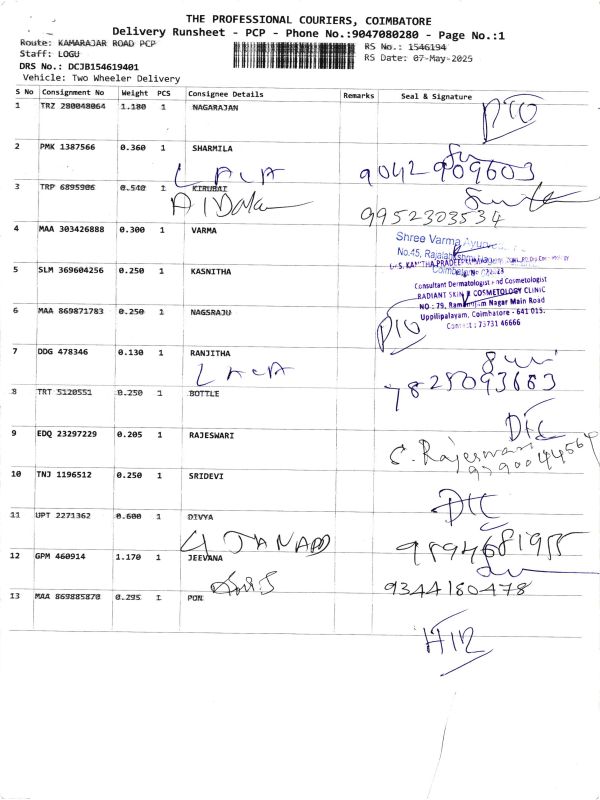 THE PROFESSIONAL COURIERS, COIMBATORE
Delivery Runsheet - PCP - Phone No.:9047080280 - Page No.:1
Route: KAMARAJAR ROAD PCP
RS No.: 1546194
Staff: LOGU
RS Date: 07-May-2025
DRS No.: DCJB154619401
Vehicle: Two Wheeler Delivery
S No Consignment No Weight PCS Consignee Details Remarks Seal & Signature
1 TRZ 280048064 1.180 1 NAGARAJAN
2 PMK 1387566 0.360 1 SHARMILA
LALA 9042909603
3 TRP 6895906 0.540 1 KIRUBAI
9952303534
4 MAA 303426888 0.300 1 VARMA
Shree Varma Ayurveda
No.45, Rajalakshmi
5 SLM 369604256 0.250 1 KASNITHA
Consultant Dermatologist and Cosmetologist
RADIANT SKIN & COSMETOLOGY CLINIC
NO : 79, Ramanujam Nagar Main Road
6 MAA 869871783 0.250 1 NAGSRAJU
Uppilipalayam, Coimbatore - 641 015.
Contact : 73731 46666
7 DDG 478346 0.130 1 RANJITHA
LALA
8 TRT 5120551 0.250 1 BOTTLE
9 EDQ 23297229 0.205 1 RAJESWARI
C. Rajeswari
10 TNJ 1196512 0.250 1 SRIDEVI
11 UPT 2271362 0.600 1 DIVYA
12 GPM 460914 1.170 1 JEEVANA
9344160478
13 MAA 869885870 0.295 1 PON